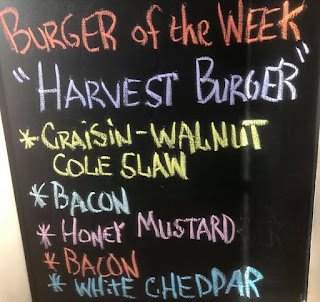 BURGER of the WEEK
"HARVEST BURGER"
*CRAISIN-WALNUT
COLE SLAW
*BACON
*HONEY MUSTARD
*BACON
*WHITE CHEDDAR